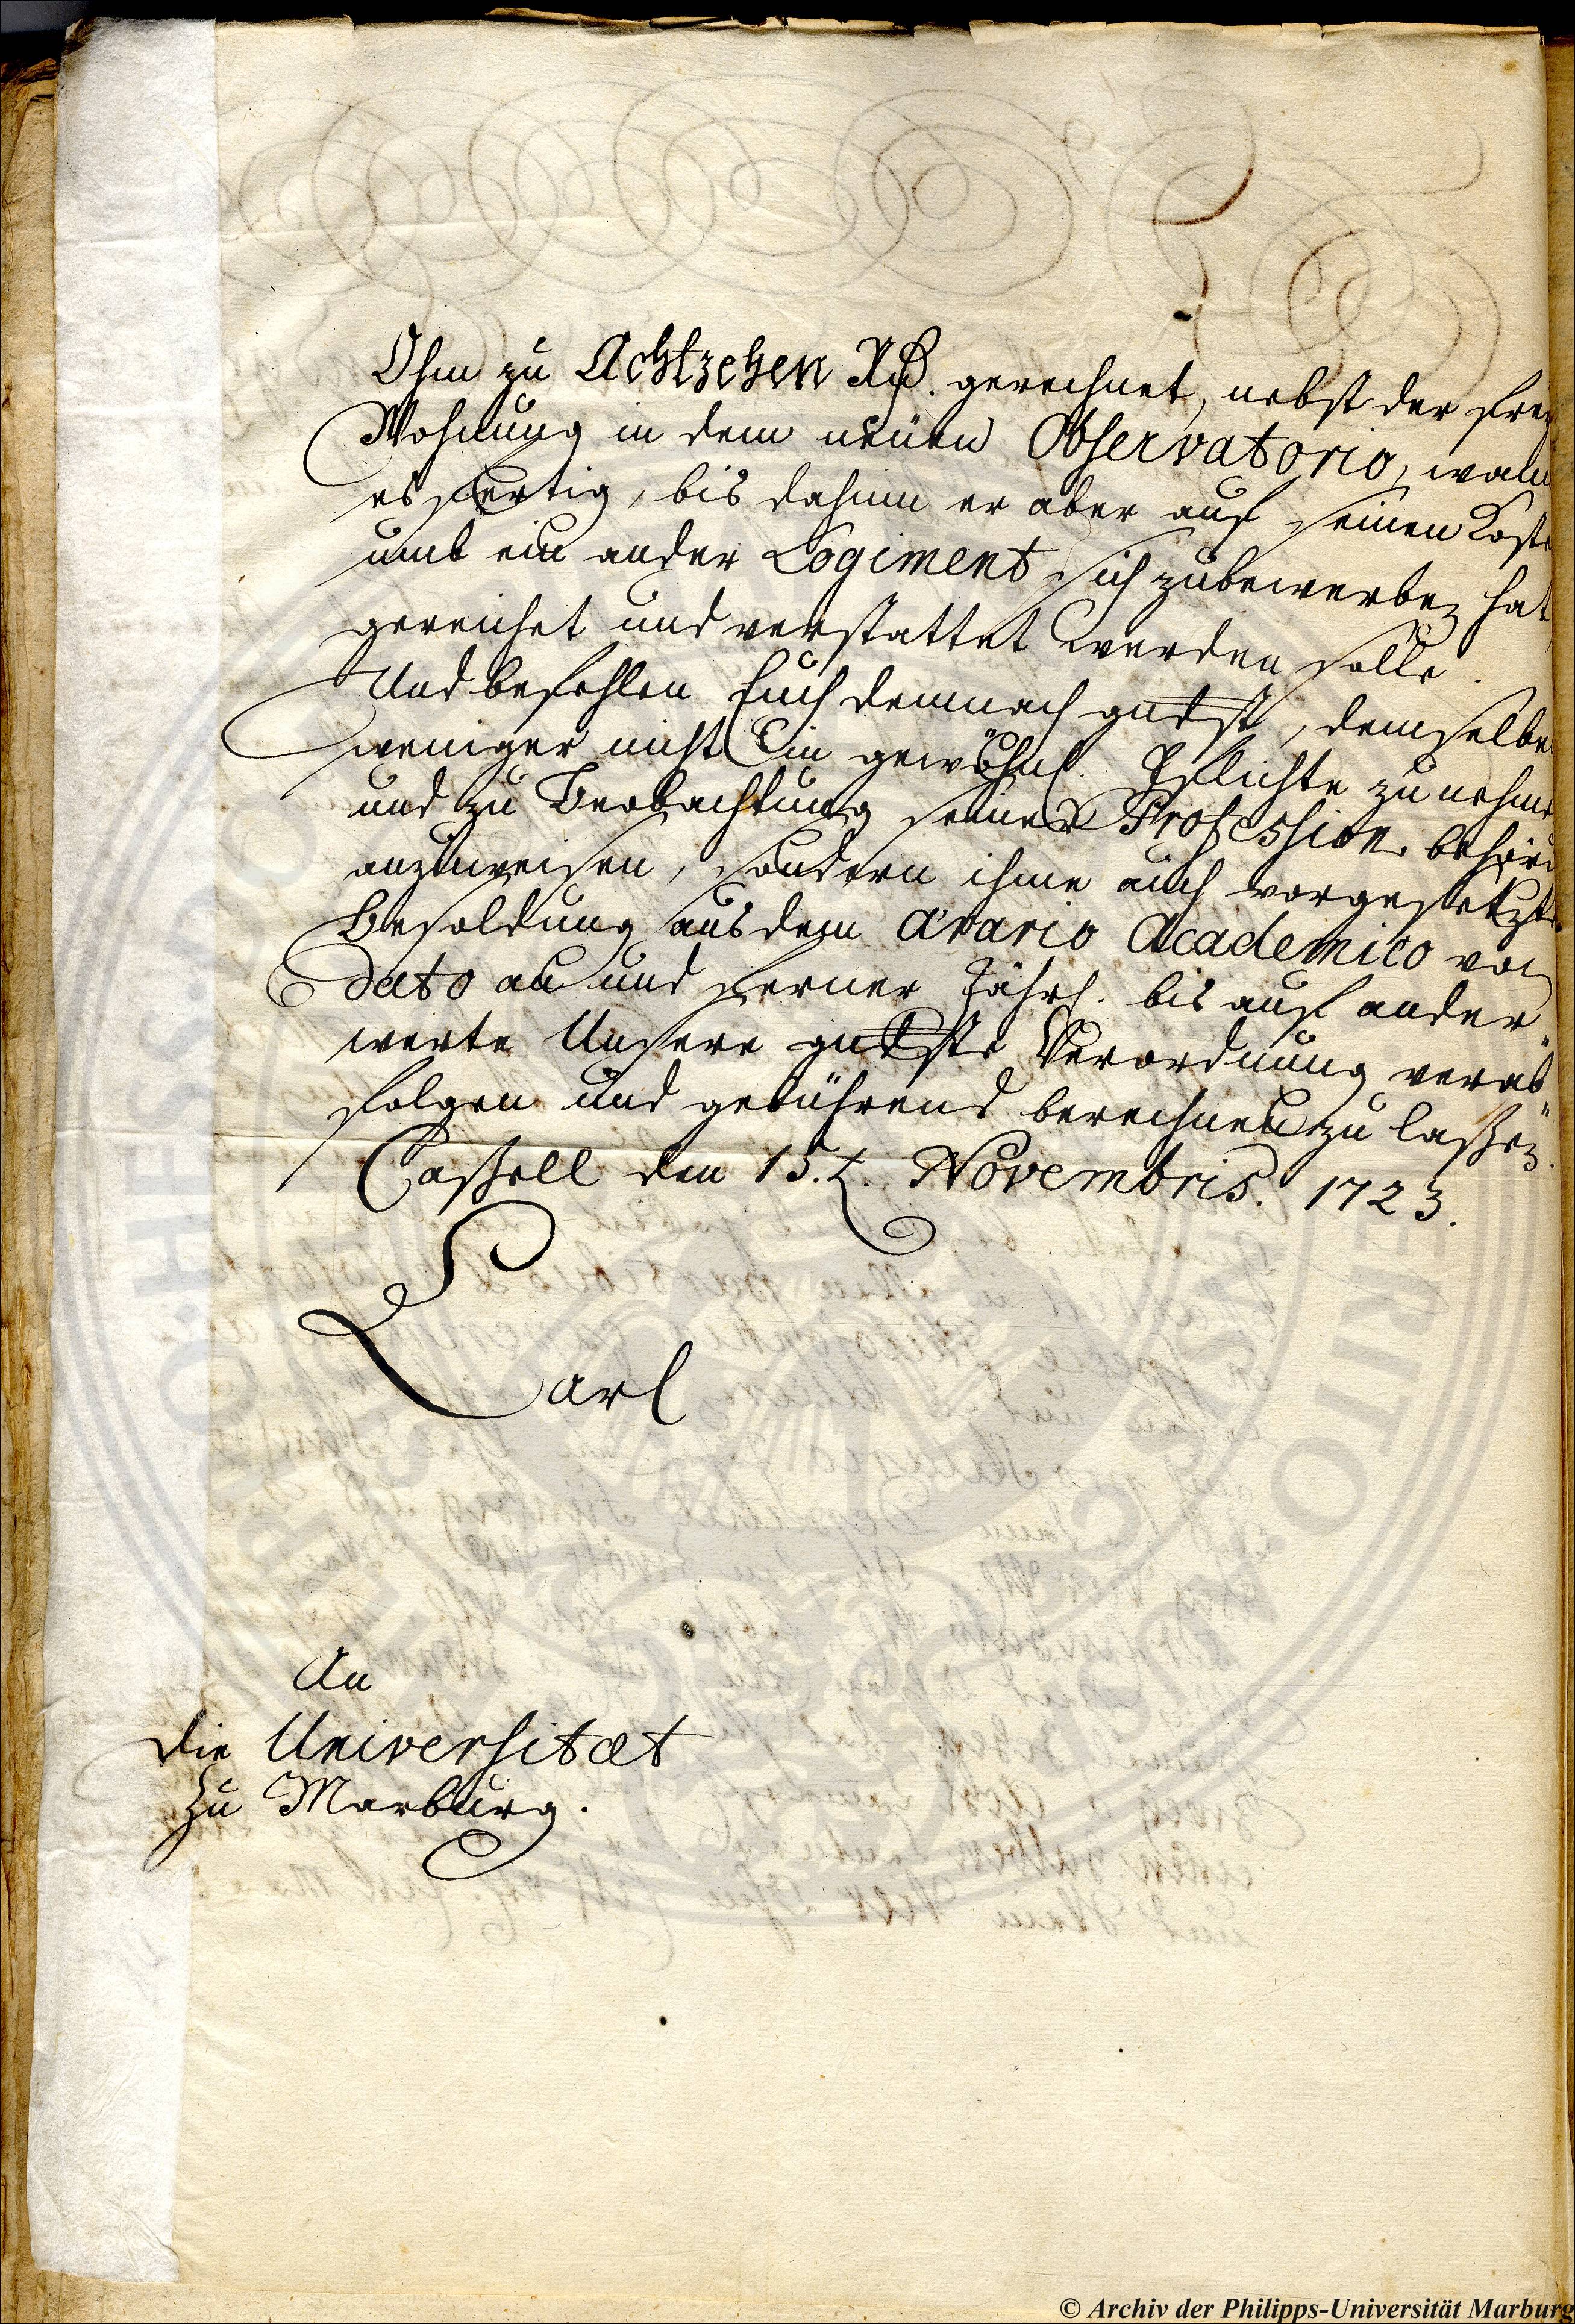 Ohm zu Achtzehen Rthlr. gerechnet, nebst der frey
Wohnung in dem neüen Observatorio, wann
es fertig, bis dahinn er aber auf seinen Koste
umb ein ander Logiment sich zubewerben hat
gereichet und verstattet werden solle.
Und befehlen Euch demnach gndst, demselbe
weniger nicht in gewöhnl. Pflichte zu nehme
und zu Beobachtung seiner Profession behörd
anzuweisen, sondern ihme auch vorgesetzte
Besoldung aus dem Ærario Academico von
dato an und ferner Jährl. bis auf ander"
werte Unsere gndste Verordnung verab"
folgen und gebührend berechnen zu laßen.
Caßell den 15.t. Novembris. 1723.
Carl
An
die Universitæt
zu Marburg.
© Archiv der Philipps-Universität Marburg